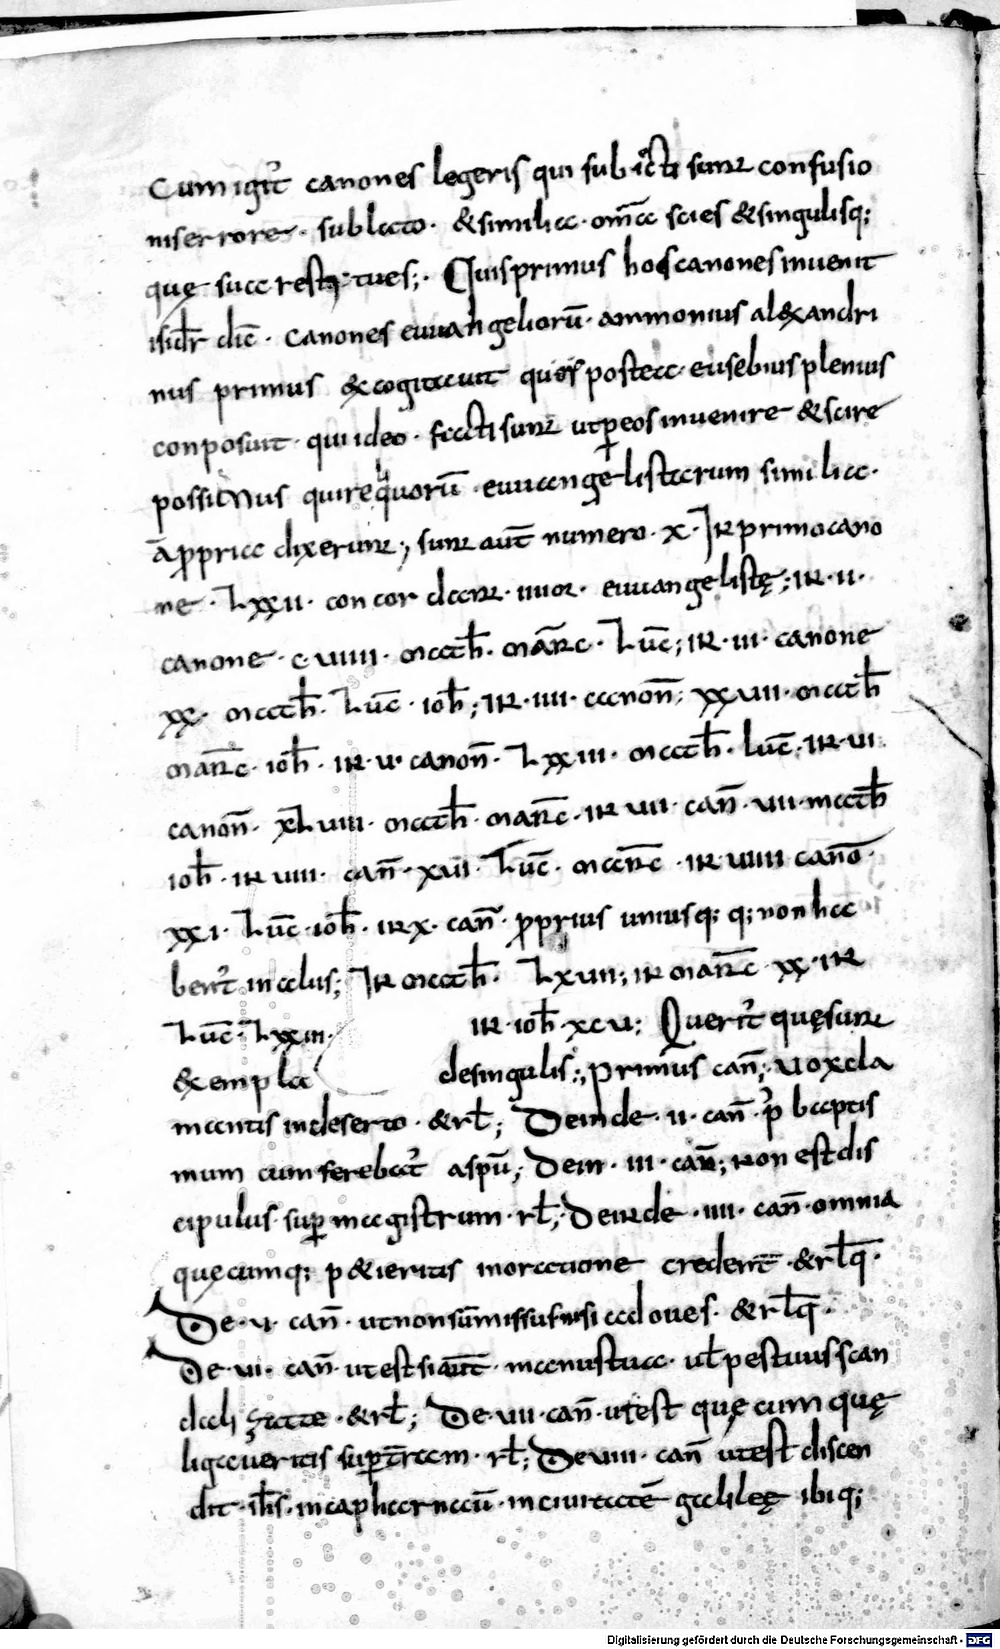 Cum igit̄ canones legeris qui sub iecti sunt confusio
nis errore · sublato · & similia · om̄a scies & singulisq;
quę sua restitues; · Quis primus hos canones invenit
isidr̄ dic̄ · canones euuangeliorū · ammonius alexandri
nus primus excogitauit quos postea · eusebius plenius
conposuit · qui ideo · facti sunt ut p̱ eos invenire & scire
possimus qui reliquorū · euuangelistarum similia ·
ā ꝓpria dixerunt; sunt aut̄ numero · x · In primo cano
ne · Lxxii · concordant · iiiior · euuangelistę; in · ii ·
canone · c · viiii · math̄ · marc̄ · Luc̄; in · iii · canone
xx · math̄ · Luc̄ · ioh̄; in · iiii · canon̄ · xxvii · math̄
marc̄ · ioh̄ · in · v · canon̄ · Lxxiii · math̄ · luc̄ · in · vi
canon̄ · xLviii · math̄ · marc̄ · in vii · can̄ · vii · math̄
ioh̄ · in viii · can̄ · xiii · Luc̄ · marc̄ · in viiii canō ·
xxi · Luc̄ · ioh̄ · in x · can̄ · ꝓprius uniusq; q; non ha
bent̄ in alus; In math̄ · Lxvii; in marc̄ xx · in
Luc̄ · Lxxiii · in · ioh̄ · xcv; Querit̄ quę sunt
exempla de singulis; primus can̄; vox cla
mantis in deserto · & rł; Deinde · ii · can̄ · p̄ baptis
mum cum ferebat̄ a spū; Dein · iii · can̄; non est dis
cipulus · sup̱ magistrum · rł; Deinde · iiii · can̄ · omnia
quęcumq; p&ieritis in oratione credent̄ · & rłq ·
De · v · can̄ · ut non sum̄ missus nisi ad oves · & rłq ·
De · vi · can̄ · ut est si aut̄ · manus tua · uł pes tuus scan
dalizate · & rł; De · vii · can̄ · ut est quę cum quę
ligaveritis sup̱ t̄ram · rł; De viii · can̄ ut est discen
dit · ih̄s · in capharnaū · in civitatē galileę ibiq;
Digitalisierung gefördert durch die Deutsche Forschungsgemeinschaft - DFG